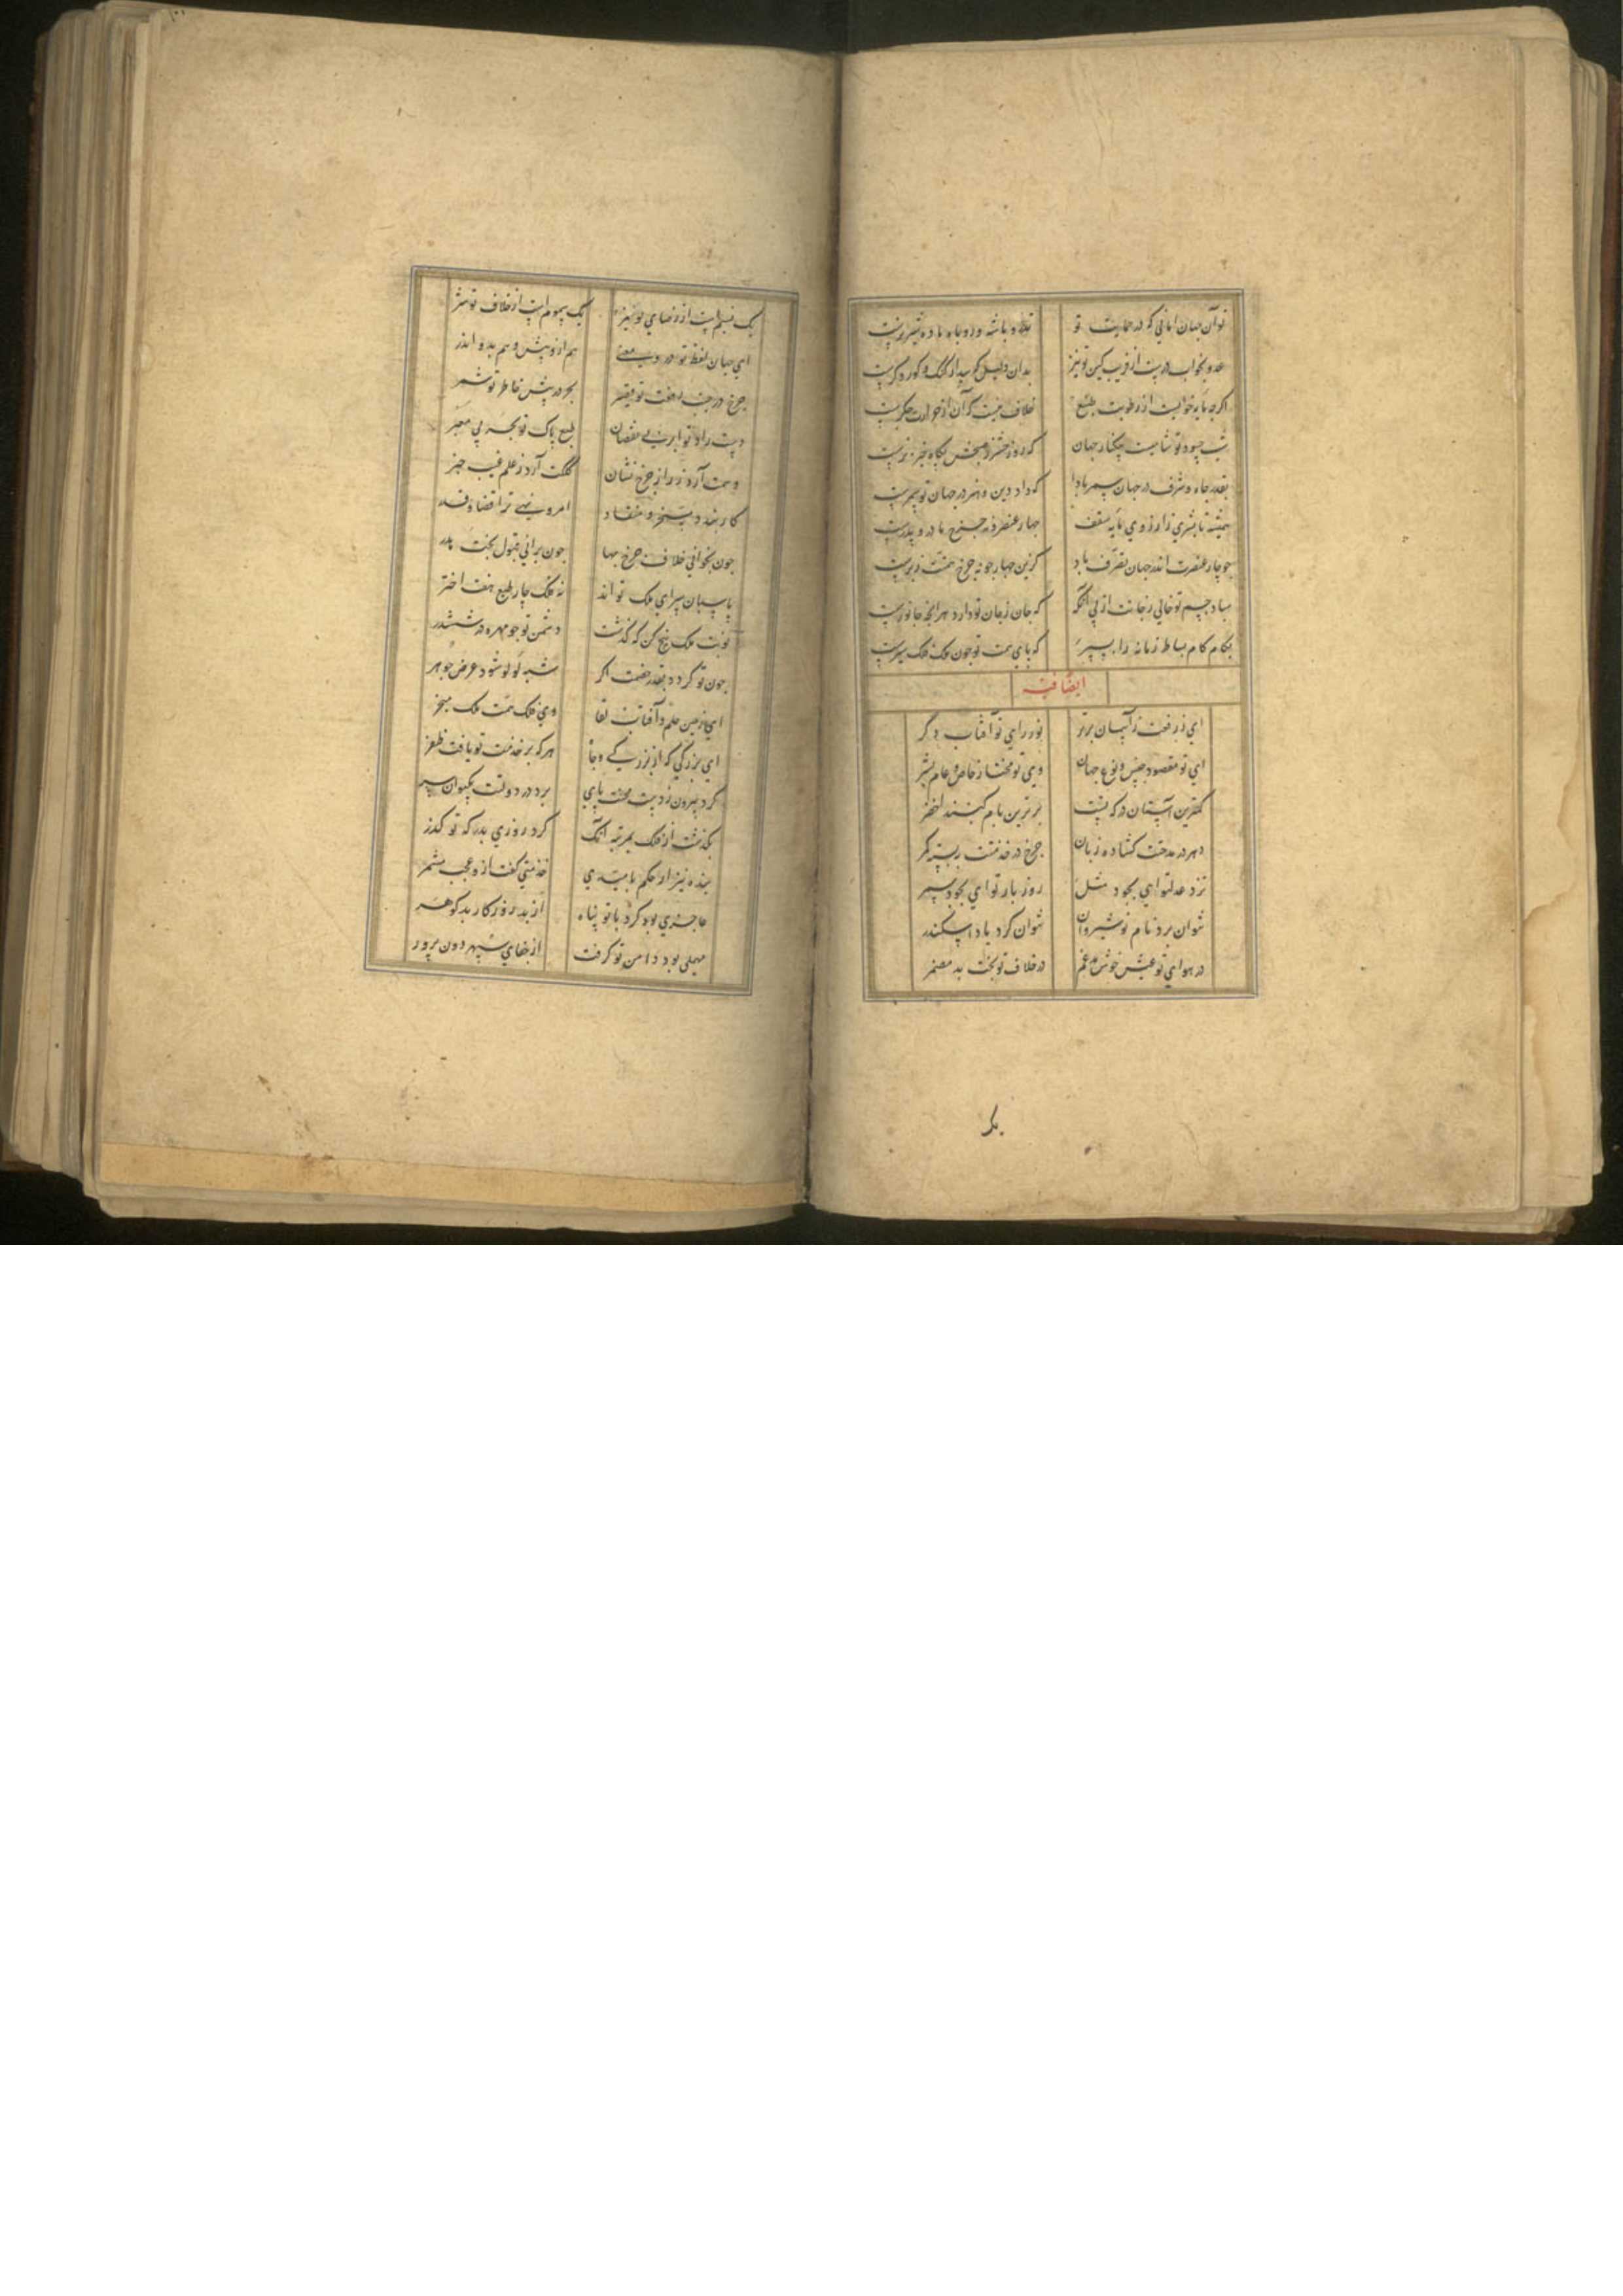 تو آن جهان امانی که در حمایت تو تذرو باشه و روباه ماده شیر نرست
عدو بخواب درست از فریب کین تو نیز بدان دلیل که بیدار گنگ و کور و کرست
اگرچه مایه خوابست از رطوبت طبع خلاف نیست که آن از حرارت جگرست
که روز حشر
بقدر جاه و شرف در جهان سمر بادا که داد دین و هنر در جهان تو سمرست
همیشه تا بشری را ز روی مایه سقف چهار عنصر و نه چرخ مادر و پدرست
چو چار عنصرت اندر جهان تصرف باد کزین چهار چو نه چرخ همتت زبرست
مباد جسم تو خالی ز جانت از پی آنکه که جان ز جان تو دارد هر آنچه جانورست
بکام کام بساط زمانه را بسپر که پای همت تو چون ملک فلک سپرست
ایضا فیه
ای ز رفعت ز آسمان برتر نور رای تو آفتاب دگر
ای تو مقصود جنس و نوع جهان وی تو مختار خاص و عام بشر
کمترین آستان درگه تست برترین بام گنبد اخضر
دهر در مدحتت گشاده زبان چرخ در خدمتت ببسته کمر
نزد عدل تو ای بجود مثل روز بار تو ای بجود سمر
نتوان برد نام نوشیروان نتوان کرد یاد اسکندر
در هوای تو عیش خوش مدغم در خلاف تو بخت بد مضمر
یک
یک نسیم است از رضای تو نیز یک سموم است از خلاف تو شر
ای جهان لفظ و تو درو معنی هم ازو پیش و هم بدو اندر
چرخ در جنب رفعت تو قصیر بحر در پیش خاطر تو شمر
دست راد تو ابر بی نقصان طبع پاک تو بحر بی معبر
وهمت آرد ز راز چرخ نشان کلکت آرد ز علم غیب خبر
امر و نهی ترا قضا و قدر
چون بخوانی خلاف چرخ بها چون برانی قبول بخت پدر
پاسبان سرای ملک تو اند نه فلک چار طبع هفت اختر
نوبت ملک پنج کن که گذشت دشمن تو چو مهره در ششدر
چون تو گردد بقدر خصمت اگر شبه لولو شود عرض جوهر
ای زمین حلم و آفتاب لقا وی فلک همت ملک مخبر
ای بزرگی که از بزرگی و جاه هر که بر خدمت تو یافت ظفر
کرد بیرون ز دست محنت پای برد در دولت بکیوان سر
بگذشت از فلک بمرتبه آنک کرد روزی بدرگه تو گذر
بنده نیز ار بحکم امیدی خدمتی گفت ازو عجب مشمر
عاجزی بود کرد با تو پناه از بد روزگار بد گوهر
مهملی بود دامن تو گرفت از جفای سپهر دون پرور